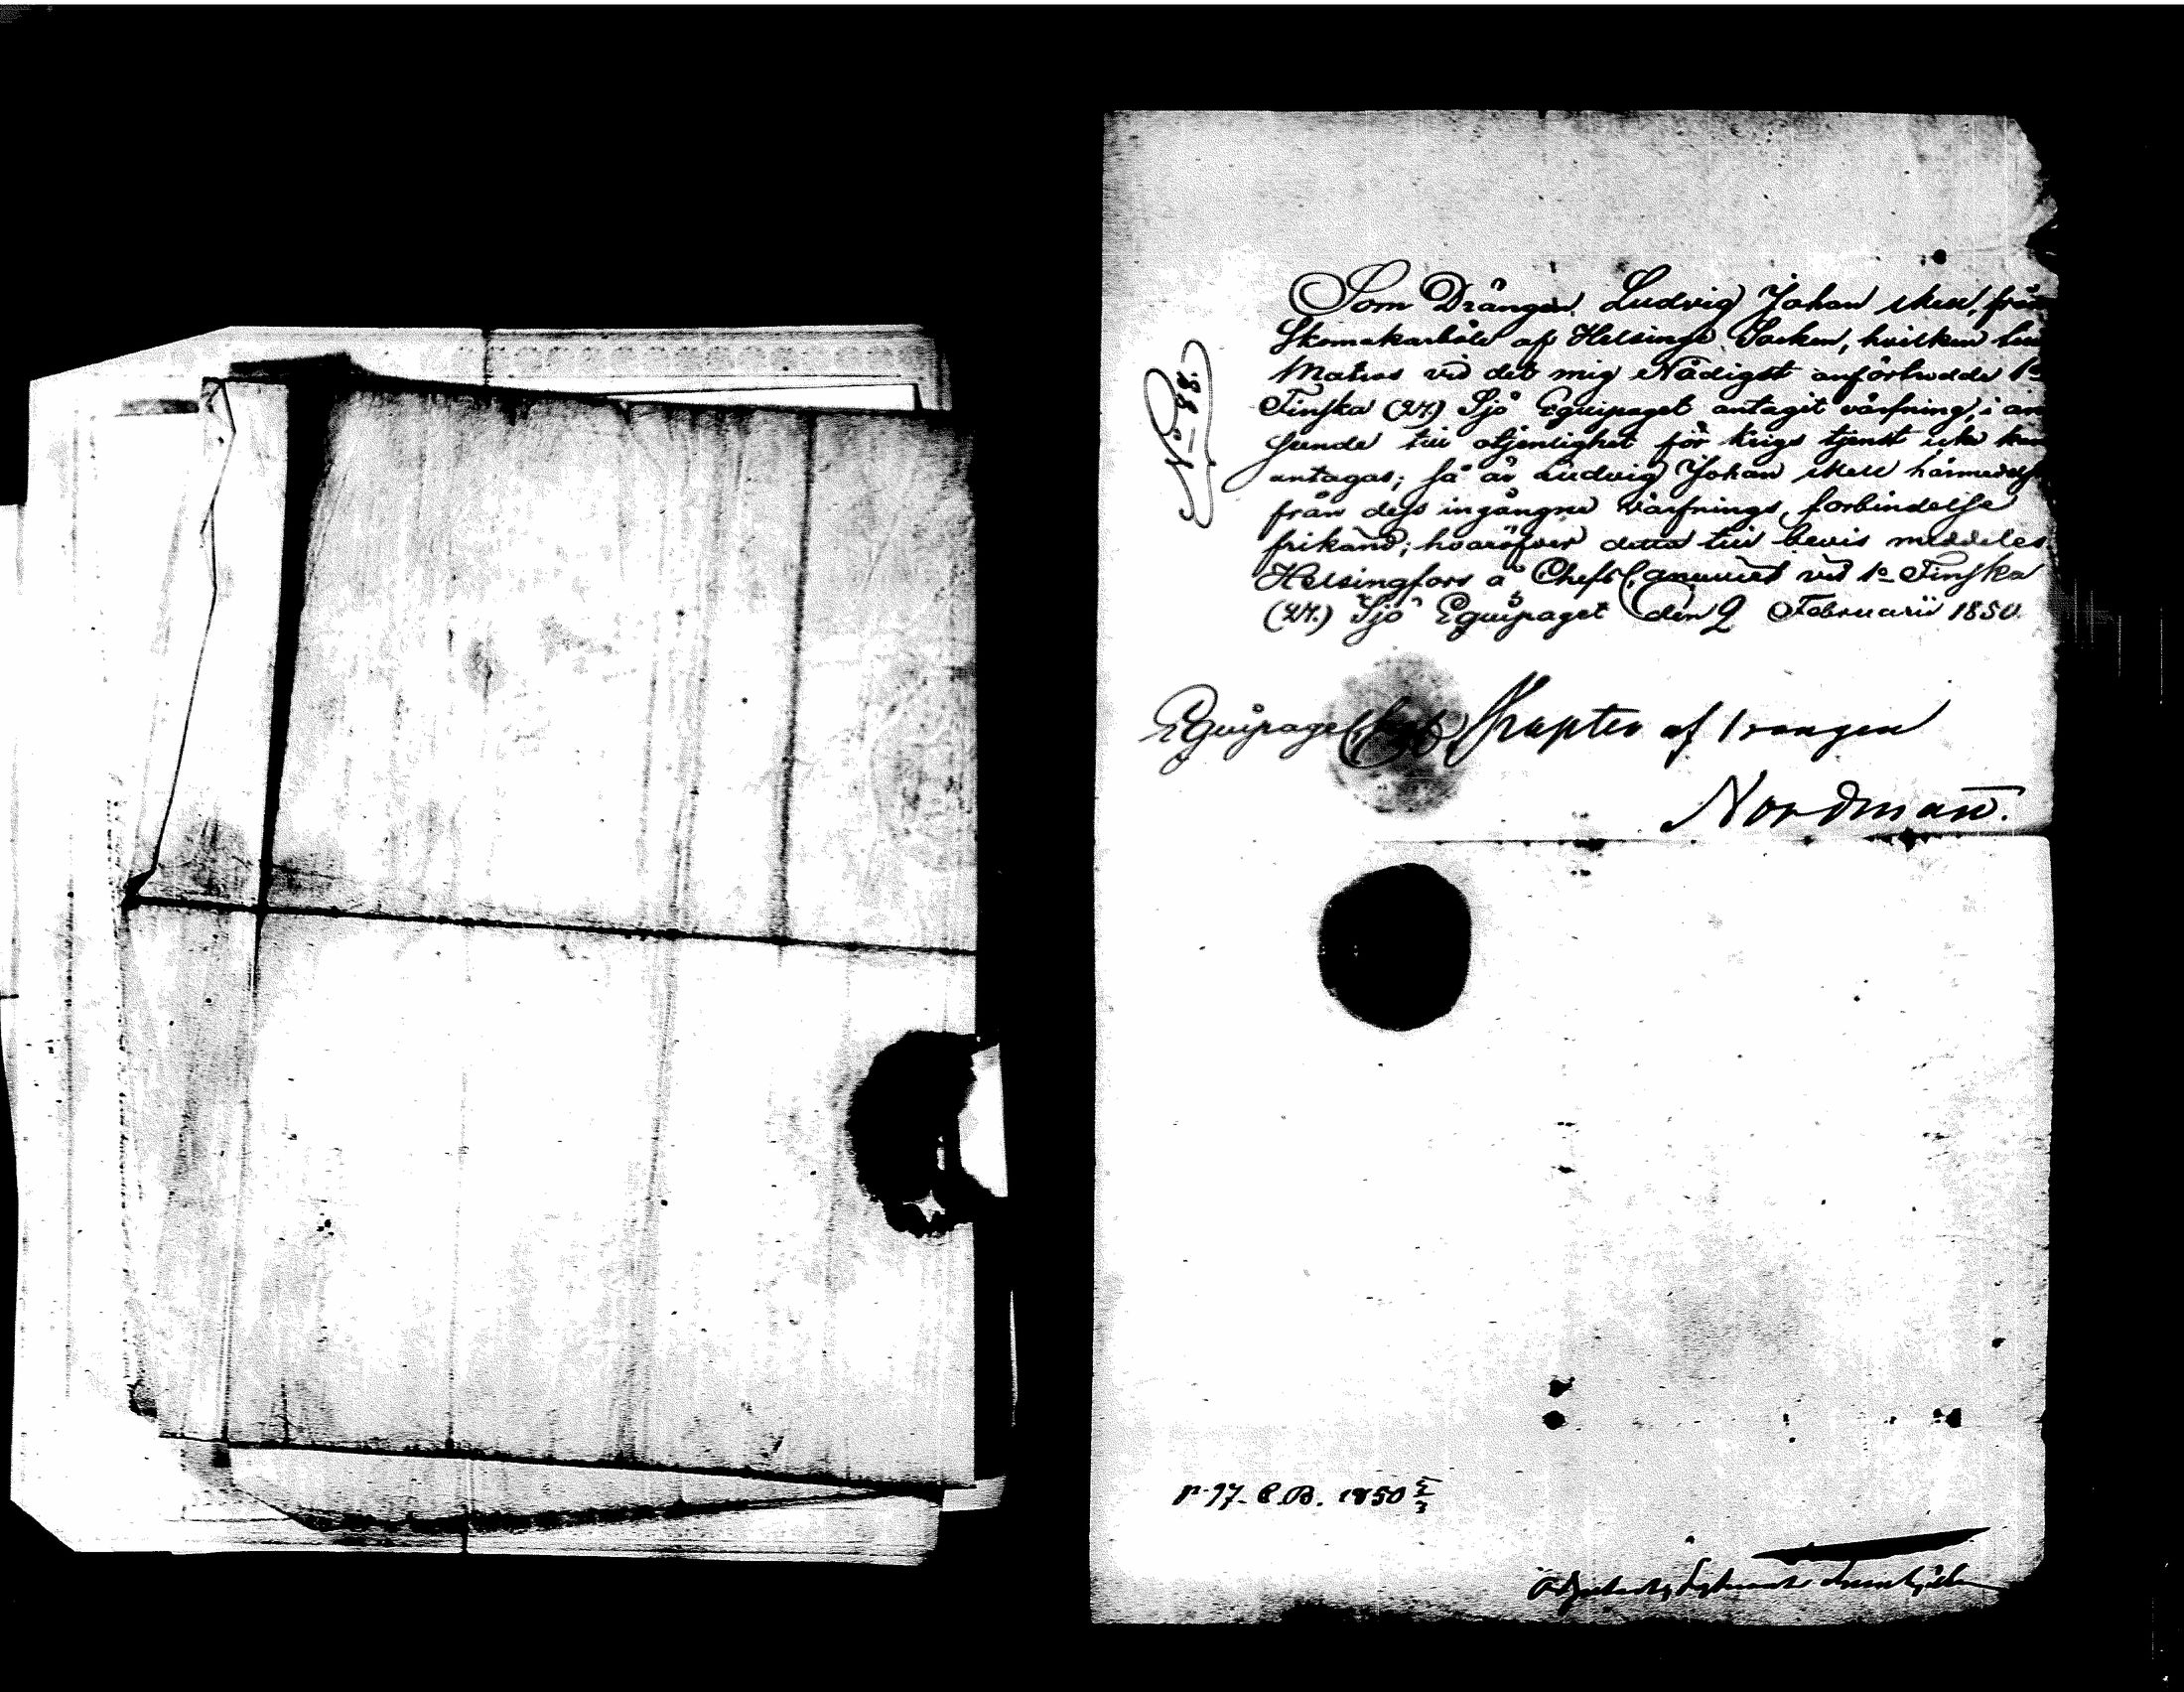 No 88.
Som Drängen Ludvig Johan Mell, från
Skomakarböle af Helsinge Socken, hvilken
Matros vid det mig Nådigst anförtrodde 1a
Finska (27.) Sjö Equipaget antagit värfning, i an
seende till otjenlighet för Krigs tjenst icke kun
antagas; så är Ludvig Johan Mell härmedelst
från dess ingångne värfnings förbindelse
frikänd; hvaröfver detta till bevis meddeles
Helsingfors å Chefs Canselliet vid 1a Finska
(27.) Sjö Equipaget den 2 Februarii 1850.
Equipage Chef, Kapten af 1 rangen
Nordman.
C.B. 1850